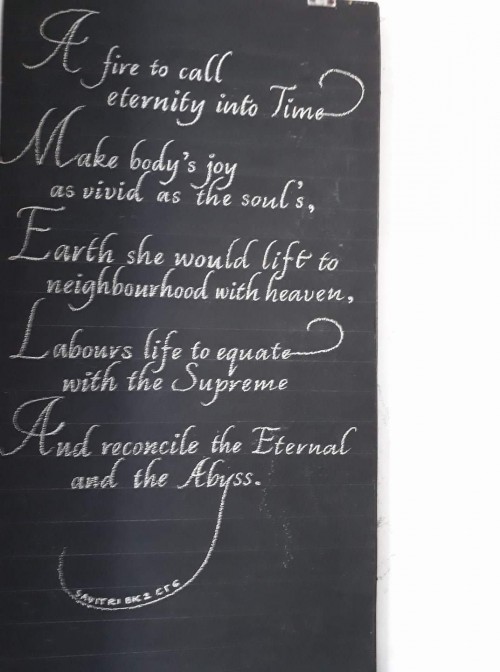 A fire to call
eternity into Time
Make body's joy
as vivid as the soul's,
Earth she would lift to
neighbourhood with heaven,
Labours life to equate
with the Supreme
And reconcile the Eternal
and the Abyss.
SAVITRI BK 2 CT 6